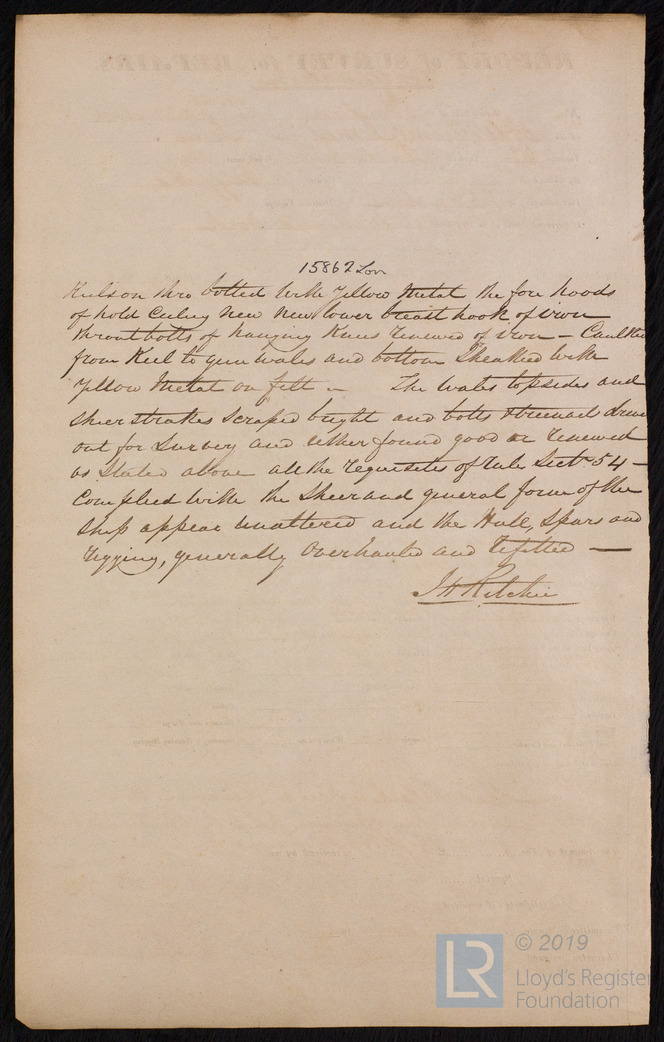 15862 Lon
Keelson thro bolted with Yellow Metal the fore hoods
of hold Ceiling New New lower breast hook of iron
throat bolts of hanging Knees renewed of iron – Caulked
from Keel to gunwales and bottom Sheathed with
Yellow Metal on felt – The Wales topsides and
sheerstrakes scraped bright and bolts & treenails driven
out for Survey and either found good or renewed
as Stated above all the requisites of rule Sect 54 –
Complied with the Sheer and general form of the
Ship appear unaltered and the Hull, Spars and
rigging, generally Overhauled and refitted —
J H Ritchie
REPORT of SURVEY for REPAIRS
LR
© 2019
Lloyd's Register
Foundation